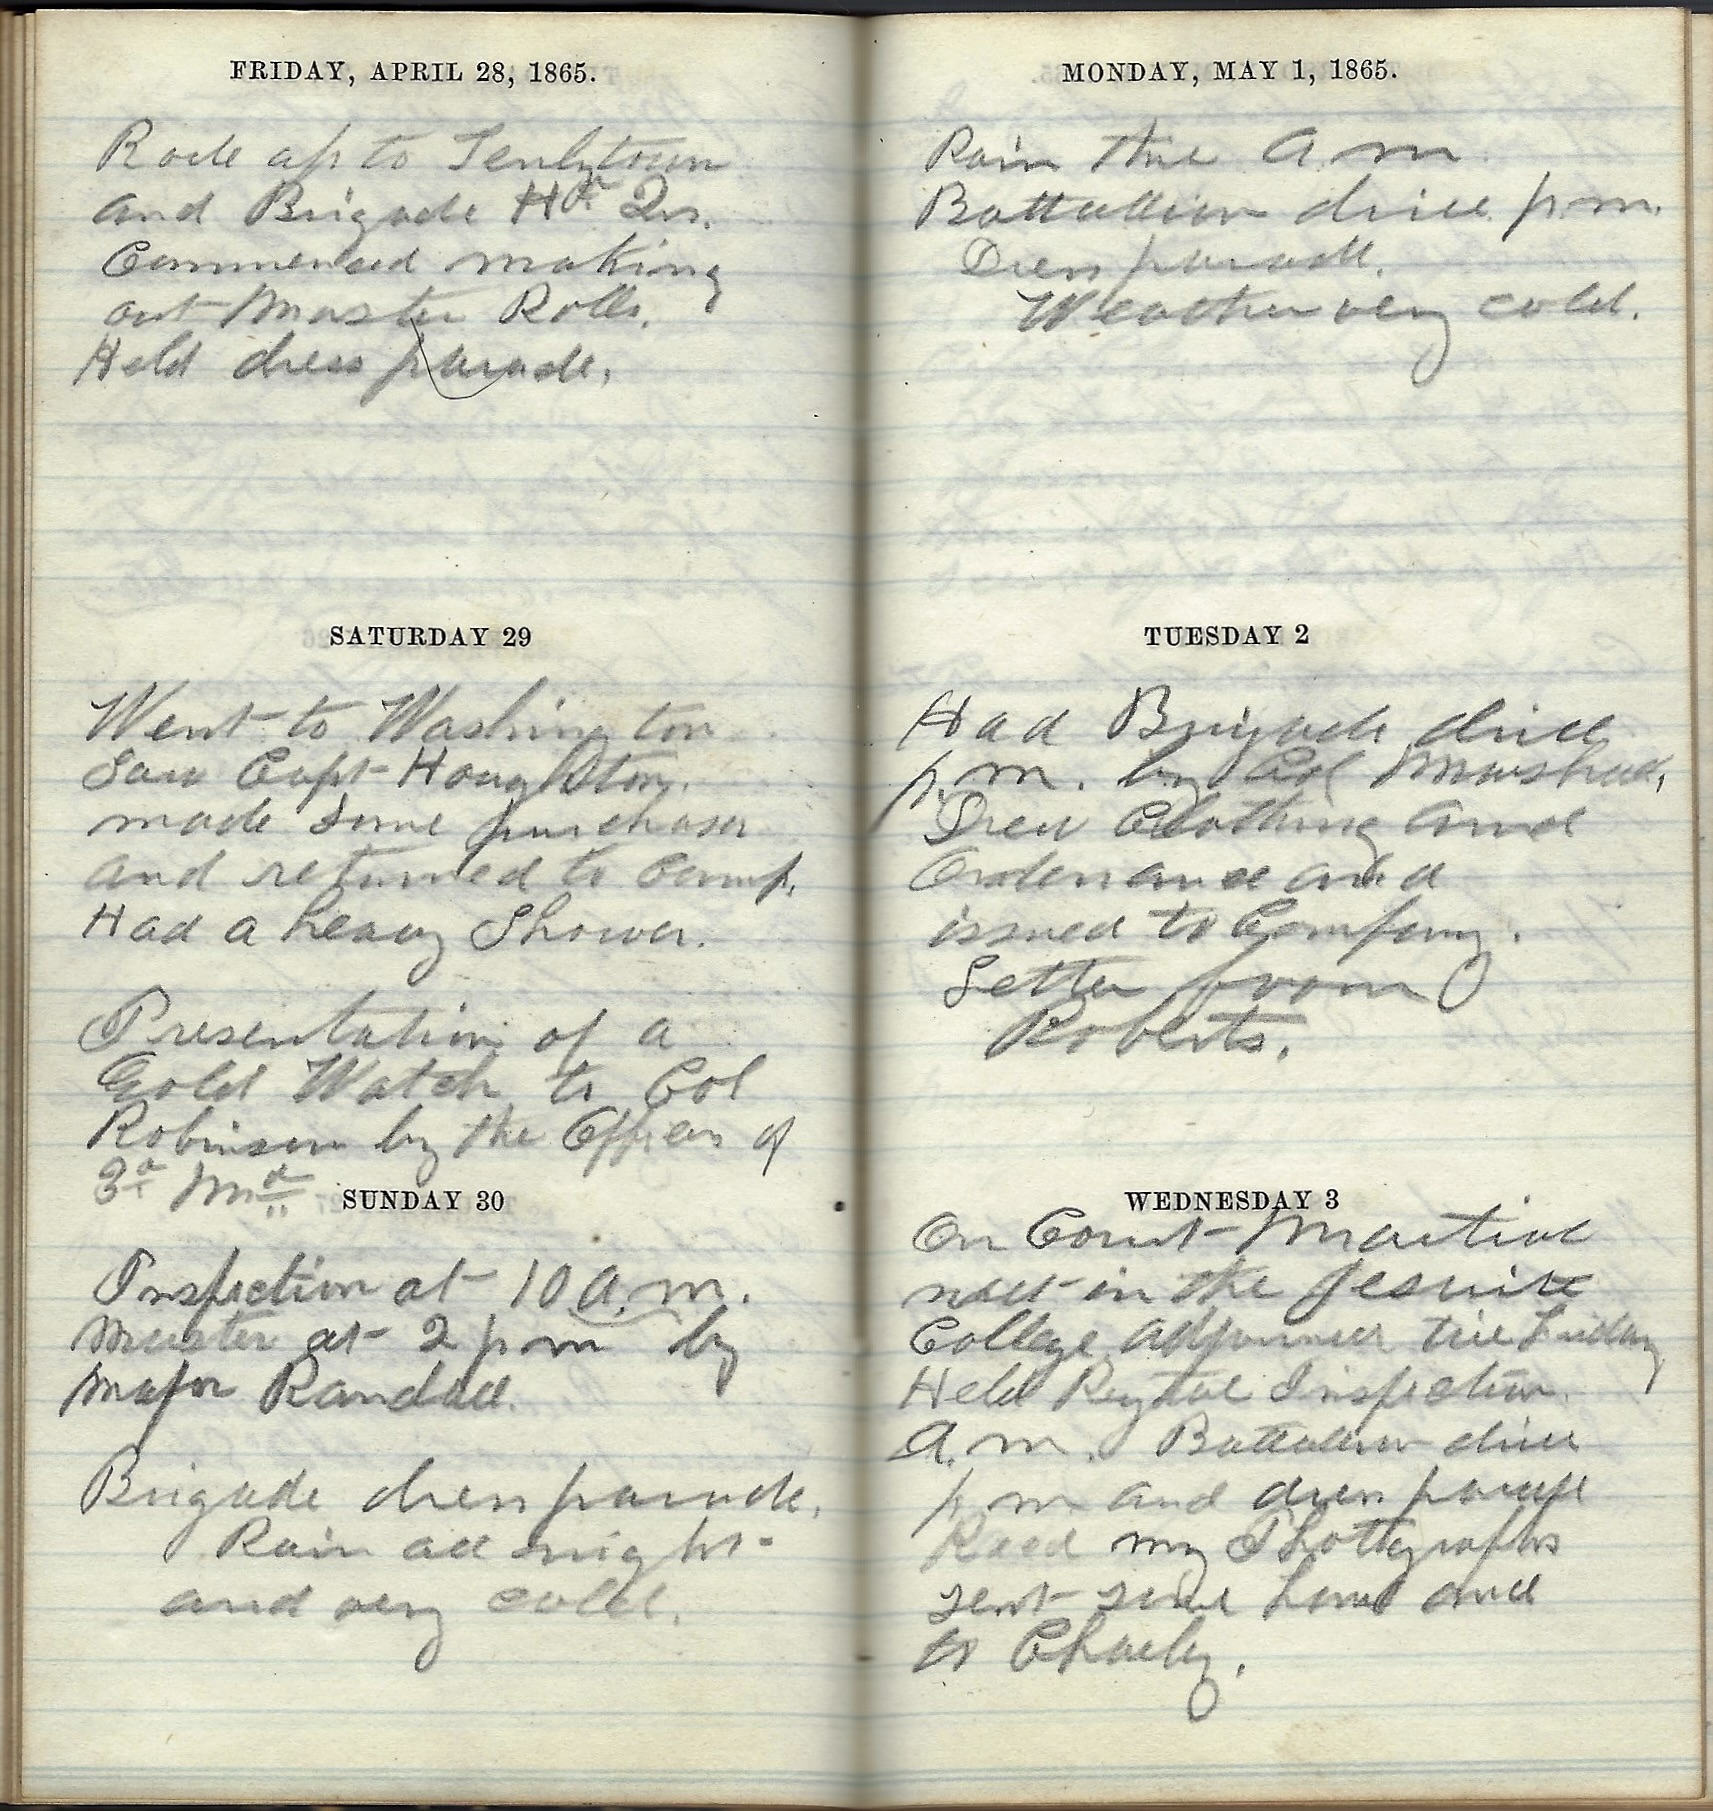 FRIDAY, APRIL 28, 1865.
Rode up to Tenlytown
and Brigade Hd. Qrs.
Commenced making
out Muster Rolls.
Held dress parade.
SATURDAY 29
Went to Washington
Saw Capt Houghton.
made some purchases
and returned to camp.
Had a heavy Shower.
Presentation of a
Gold Watch to Col
Robinson by the Officers of
3d Md
SUNDAY 30
Inspection at 10 a.m.
Muster at 2 p m by
Major Randall.
Brigade dress parade.
Rain all night
and very cold.
MONDAY, MAY 1, 1865.
Rain the A m
Battallion drill p.m.
Dress parade.
Weather very cold.
TUESDAY 2
Had Brigade drill
p.m. by Col
Drew Clothing and
Ordenance and
issued to Company.
Letter from
Roberts.
WEDNESDAY 3
On Court Martial
met in the Jesuite
College adjourned till Friday
Held Regtal Inspection
A.m. Battalion drill
p m and dress parade
Recd my Photographs
sent some home and
to Charley.